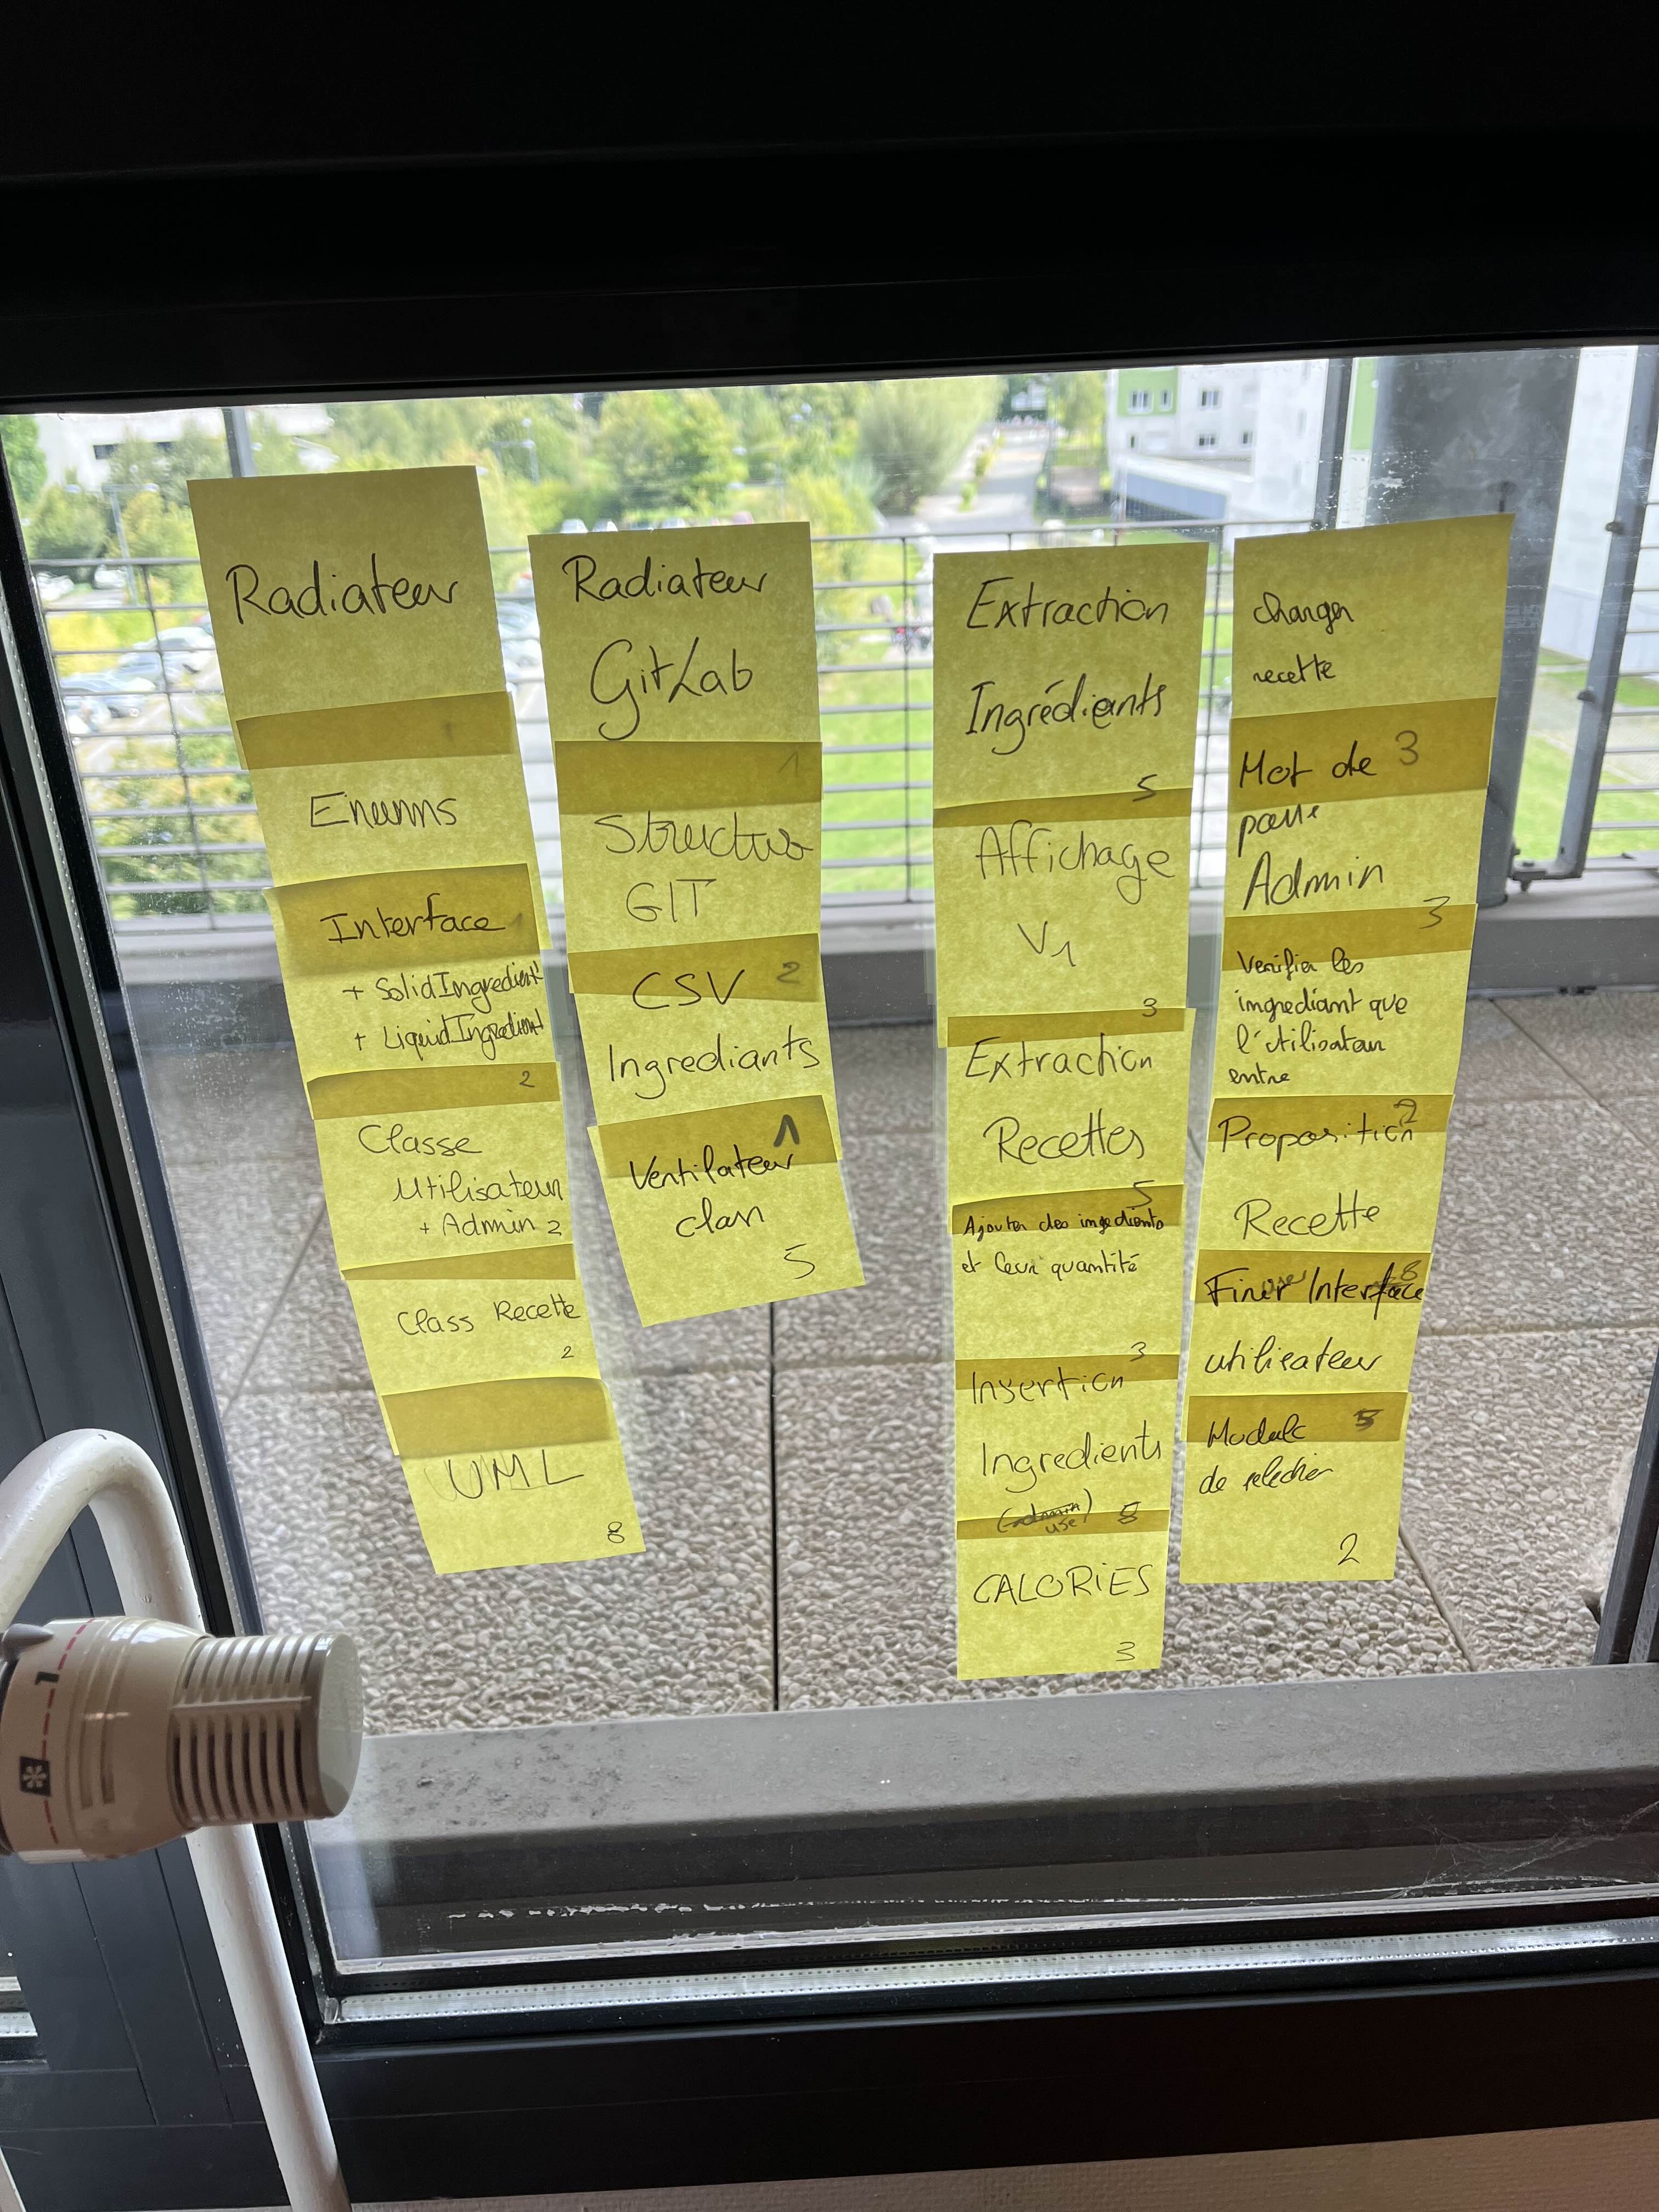 Radiateur
1
Enums
1
Interface
+ SolidIngredient
+ LiquidIngredient
2
Classe
Utilisateur
+ Admin 2
Class Recette
2
UML
8
Radiateur
GitLab
1
Structure
GIT
2
CSV
Ingrediants
1
Ventilateur
clan
5
Extraction
Ingrédients
5
Affichage
V1
3
Extraction
Recettes
5
Ajouter des ingedients
et leur quantité
3
Insertion
Ingredients
8
CALORIES
3
changer
recette
3
Mot de
passe
Admin
3
Verifier les
ingrediant que
l'utilisateur
entre
2
Proposition
Recette
8
Finir Interface
utilisateur
5
Module
de
2